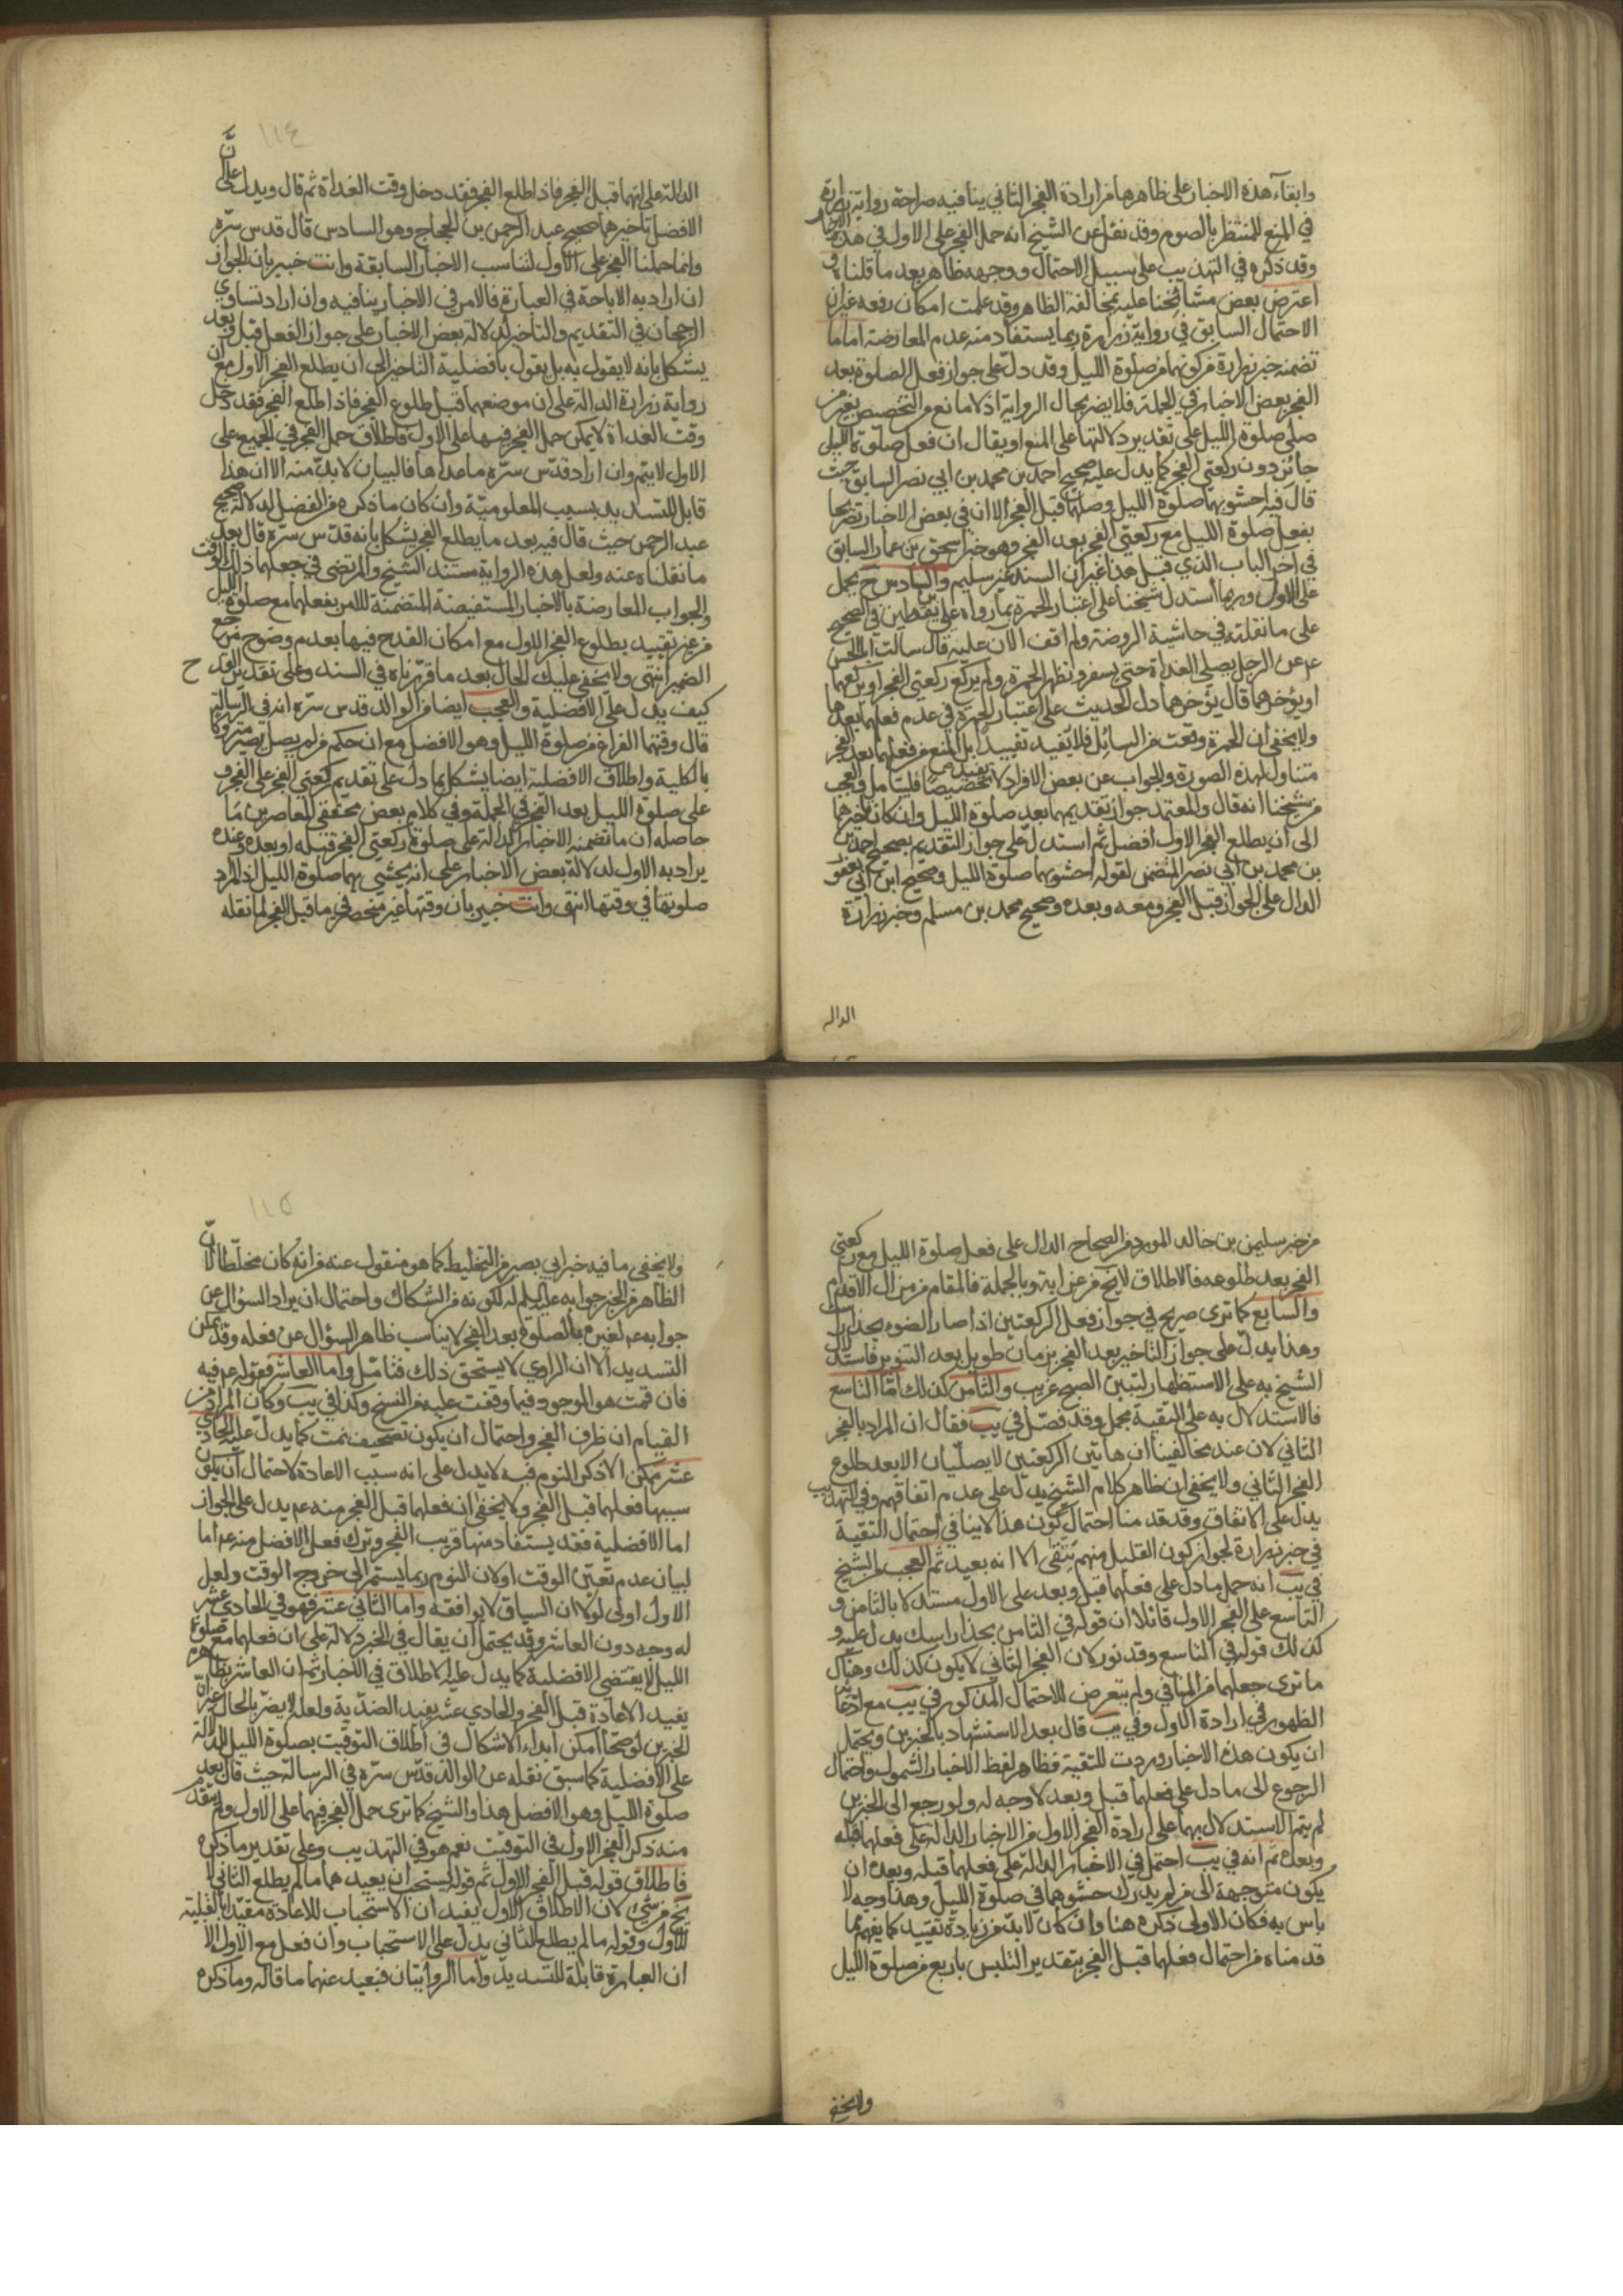 وابقاء هذه الاخبار على ظاهرها من ارادة الفجر الثاني ينافيه صراحة رواية زرارة
في المنع للمنتظر بالصوم وقد نقل عن الشيخ انه حمل الفجر على الاول في هذه الاخبار
وقد ذكره في التهذيب على سبيل الاحتمال ووجهه ظاهر بعد ما قلناه و
اعترض بعض مشائخنا عليه بمخالفة الظاهر وقد علمت امكان رفعه غير ان
الاحتمال السابق في رواية زرارة ربما يستفاد منه عدم المعارضة اما ما
تضمنه خبر زرارة من كونهما من صلوة الليل وقد دل على جواز فعل الصلوة بعد
الفجر بعض الاخبار في الجملة فلا يضر بحال الرواية اذ لا مانع من التخصيص بغير من
صلى صلوة الليل على تقدير دلالتها على المنع او يقال ان فعل صلوة الليل
جائز دون ركعتي الفجر كما يدل عليه صحيح احمد بن محمد بن ابي نصر السابق حيث
قال فيه احشو بهما صلوة الليل وصلهما قبل الفجر الا ان في بعض الاخبار تصريحا
بفعل صلوة الليل مع ركعتي الفجر بعد الفجر وهو خبر اسحق بن عمار السابق
في آخر الباب الذي قبل هذا غير ان السند غير سليم والسادس ح يحمل
على الاول وربما استدل شيخنا على اعتبار الحمرة بما رواه علي بن يقطين في الصحيح
على ما نقلته في حاشية الروضة ولم اقف الآن عليه قال سالت ابا الحسن
ع عن الرجل يصلي الغداة حتى يسفر وتظهر الحمرة ولم يركع ركعتي الفجر او يركعهما
او يؤخرهما قال يؤخرهما دل الحديث على اعتبار الحمرة في عدم فعلهما بعدها
ولا يخفى ان الحمرة وقعت من السائل فلا يفيد تقييدا بل المنع من فعلهما بعد الفجر
متناول لهذه الصورة والجواب عن بعض الافراد لا يفيد تخصيصا فليتامل والعجب
من شيخنا انه قال والمعتمد جواز تقديمهما بعد صلوة الليل وان كان تاخيرهما
الى ان يطلع الفجر الاول افضل ثم استدل على جواز التقديم بصحيح احمد بن
بن محمد بن ابي نصر المتضمن لقوله احشو بهما صلوة الليل وصحيح ابن ابي يعفور
الدال على الجواز قبل الفجر ومعه وبعده وصحيح محمد بن مسلم وخبر زرارة
الدالة
١١٤
الدالة على انهما قبل الفجر فاذا طلع الفجر فقد دخل وقت الغداة ثم قال ويدل على ان
الافضل تاخيرهما صحيح عبد الرحمن بن الحجاج وهو السادس قال قدس سره
وانما حملنا الفجر على الاول لتناسب الاخبار السابقة وانت خبير بان الجواز
ان اراد به الاباحة في العبارة فالامر في الاخبار ينافيه وان اراد تساوي
الرجحان في التقديم والتاخير لدلالة بعض الاخبار على جواز الفعل قبل وبعد
يشكل بانه لا يقول به بل يقول بافضلية التاخير الى ان يطلع الفجر الاول مع ان
رواية زرارة الدالة على ان موضعهما قبل طلوع الفجر فاذا طلع الفجر فقد دخل
وقت الغداة لا يمكن حمل الفجر فيها على الاول فاطلاق حمل الفجر في الجميع على
الاول لا يتم وان اراد قدس سره ما عداها فالبيان لا بد منه الا ان هذا
قابل للتسديد بسبب المعلومية وان كان ما ذكره من الفضل لدلالة صحيح
عبد الرحمن حيث قال فيه بعد ما يطلع الفجر يشكل بانه قدس سره قال بعد
ما نقلناه عنه ولعل هذه الرواية مستند الشيخ والمرتضى في جعلهما ذلك الوقت
والجواب المعارضة بالاخبار المستفيضة المتضمنة للامر بفعلهما مع صلوة الليل
من غير تقييد بطلوع الفجر الاول مع امكان القدح فيها بعدم وضوح مرجع
الضمير انتهى ولا يخفى عليك الحال بعد ما قررناه في السند وعلى تقدير القدح
كيف يدل على الافضلية والعجب ايضا من الوالد قدس سره انه في الرسالة
قال وقتهما الفراغ من صلوة الليل وهو الافضل مع ان حكم من لم يصل يصير متروكا
بالكلية واطلاق الافضلية ايضا يشكل بما دل على تقديم ركعتي الفجر على الفجر و
على صلوة الليل بعد الفجر في الجملة وفي كلام بعض محققي المعاصرين ما
حاصله ان ما تضمنه الاخبار الدالة على صلوة ركعتي الفجر قبله او بعده وعنده
يراد به الاول لدلالة بعض الاخبار على انه يحشي بهما صلوة الليل اذ المراد
صلوتها في وقتها انتهى وانت خبير بان وقتها غير منحصر في ما قبل الفجر لما نقله
من خبر سليمن بن خالد المورد من الصحاح الدال على فعل صلوة الليل مع ركعتي
الفجر بعد طلوعه فالاطلاق لا يخ من غرابة وبالجملة فالمقام من مزال الاقدام
والسابع كما ترى صريح في جواز فعل الركعتين اذا صار الضوء بحذاء راسك
وهذا يدل على جواز التاخير بعد الفجر بزمان طويل بعد التنوير فاستدلال
الشيخ به على الاستظهار لتبين الصبح غريب والثامن كذلك اما التاسع
فالاستدلال به على التقية مجمل وقد فصل في يب فقال ان المراد بالفجر
الثاني لان عند مخالفينا ان هاتين الركعتين لا يصليان الا بعد طلوع
الفجر الثاني ولا يخفى ان ظاهر كلام الشيخ يدل على عدم اتفاقهم وفي التهذيب
يدل على الاتفاق وقد قدمنا احتمال كون هذا لا ينافي احتمال التقية
في خبر زرارة لجواز كون القليل منهم يتقى الا انه بعيد ثم العجب من الشيخ
في يب انه حمل ما دل على فعلهما قبل وبعد على الاول مستدلا بالثامن و
التاسع على الفجر الاول قائلا ان قوله في الثامن بحذاء راسك يدل عليه و
كذلك قوله في التاسع وقد نور لان الفجر الثاني لا يكون كذلك وهنا
ما ترى جعلهما من المنافي ولم يتعرض للاحتمال المذكور في يب مع ادعائه
الظهور في ارادة الاول وفي يب قال بعد الاستشهاد بالخبرين ويحتمل
ان يكون هذه الاخبار وردت للتقية فظاهر لفظ الاخبار الشمول واحتمال
الرجوع الى ما دل على فعلهما قبل وبعد لا وجه له ولو رجع الى الخبرين
لم يتم الاستدلال بهما على ارادة الفجر الاول من الاخبار الدالة على فعلهما قبله
وبعده ثم انه في يب احتمل في الاخبار الدالة على فعلهما قبله وبعده ان
يكون متوجهة الى من لم يدرك حشوهما في صلوة الليل وهذا وجه لا
باس به فكان الاولى ذكره هنا وان كان لا بد من زيادة تقييد كما يفهم مما
قدمناه من احتمال فعلهما قبل الفجر بتقدير التلبس باربع من صلوة الليل
ولا يخفى
١١٥
ولا يخفى ما فيه خبر ابي بصير من التخليط كما هو منقول عنه من انه كان مخلطا لان
الظاهر من الخبر جوابه عليه السلم له لكونه من الشكاك واحتمال ان يراد السؤال عن
جوابه ع لغيره بالصلوة بعد الفجر لا يناسب ظاهر السؤال عن فعله وقد يمكن
التسديد الا ان الراوي لا يستحق ذلك فتامل واما العاشر فقوله ع فيه
فان قمت هو الموجود فيما وقفت عليه من النسخ وكذا في يب وكان المراد من
القيام ان طرف الفجر واحتمال ان يكون تصحيف نمت كما يدل عليه الحادي
عشر ممكن الا ذكر النوم فيه لا يدل على انه سبب الاعادة لاحتمال ان يكون
سببها فعلهما قبل الفجر ولا يخفى ان فعلهما قبل الفجر منه ع يدل على الجواز
اما الافضلية فقد يستفاد منها قريب الفجر وترك فعل الافضل منه ع اما
لبيان عدم تعين الوقت او لان النوم ربما يستمر الى خروج الوقت ولعل
الاول اولى لولا ان السياق لا يوافقه واما الثاني عشر فهو في الحادي عشر
له وجه دون العاشر وقد يحتمل ان يقال في الخبر دلالة على ان فعلهما مع صلوة
الليل لا يقتضي الافضلية كما يدل عليه الاطلاق في الاخبار ثم ان العاشر بظاهره
يفيد الاعادة قبل الفجر والحادي عشر يفيد الضدية ولعله لا يضر بالحال غير ان
الخبرين لو صحا امكن ابداء الاشكال في اطلاق التوقيت بصلوة الليل الدالة
على الافضلية كما سبق نقله عن الوالد قدس سره في الرسالة حيث قال بعد
صلوة الليل وهو الافضل هذا والشيخ كما ترى حمل الفجر فيهما على الاول ولم يتقدم
منه ذكر الفجر الاول في التوقيت نعم هو في التهذيب وعلى تقدير ما ذكره
فاطلاق قوله قبل الفجر الاول ثم قوله يستحب ان يعيدهما ما لم يطلع الثاني لا
يخ من شئ لان الاطلاق الاول يفيد ان الاستحباب للاعادة مقيد بالقبلية
للاول وقوله ما لم يطلع الثاني يدل على الاستحباب وان فعل مع الاول الا
ان العبارة قابلة للتسديد واما الروايتان فبعيد عنهما ما قاله وما ذكره